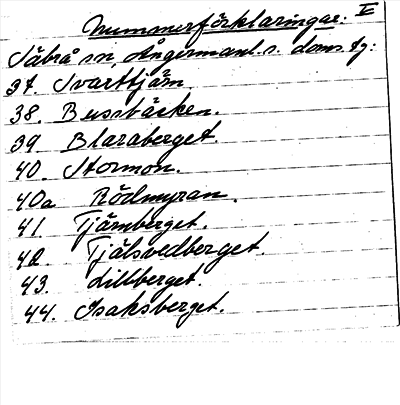 Nummerförklaringar. V
Säbrå sn, Ångermanl. s. doms. tg:
37. Svarttjärn
38. Bussbäcken.
39 Blaraberget.
40. Stormon.
40a Rödmyran.
41 Tjärnberget.
42. Tjälsvedberget.
43. Lillberget.
44. Isaksberget.